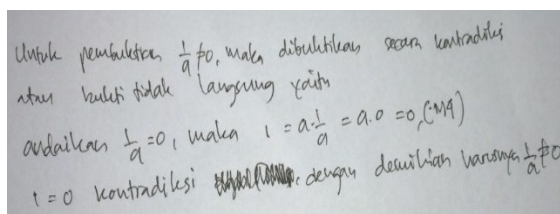 Untuk pembuktian 1/a ≠ 0, maka dibuktikan secara kontradiksi
atau bukti tidak langsung yaitu
andaikan 1/a = 0, maka 1 = a·1/a = a·0 = 0, (M4)
1 = 0 kontradiksi dengan demikian harusnya 1/a ≠ 0